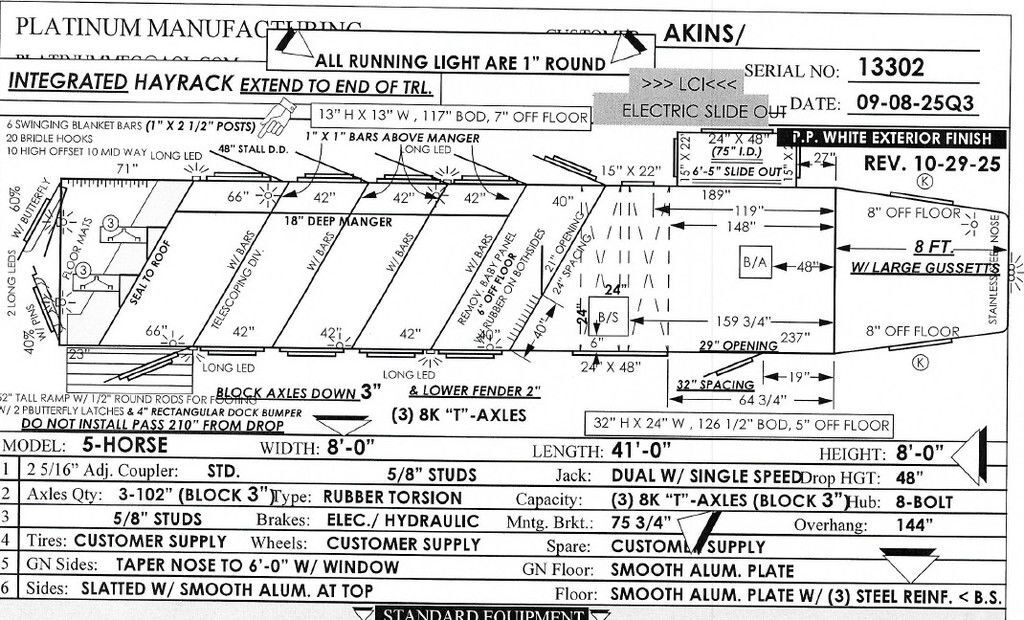 PLATINUM MANUFACTURING
CUSTOMER AKINS/
ALL RUNNING LIGHT ARE 1" ROUND
>>> LCI<<<
SERIAL NO: 13302
INTEGRATED HAYRACK EXTEND TO END OF TRL.
ELECTRIC SLIDE OUT
DATE: 09-08-25Q3
13" H X 13" W , 117" BOD, 7" OFF FLOOR
6 SWINGING BLANKET BARS (1" X 2 1/2" POSTS)
20 BRIDLE HOOKS
10 HIGH OFFSET 10 MID WAY
1" X 1" BARS ABOVE MANGER
P.P. WHITE EXTERIOR FINISH
REV. 10-29-25
LONG LED
48" STALL D.D.
LONG LED
24" X 48"
(75" I.D.)
6'-5" SLIDE OUT
5" X 22"
5" X 2
27"
71"
15" X 22"
K
60%
W/ BUTTERFLY
66"
42"
42"
42"
40"
189"
119"
148"
8" OFF FLOOR
18" DEEP MANGER
2 LONG LEDS
FLOOR MATS
3
3
SEAL TO ROOF
W/ BARS
TELESCOPING DIV.
W/ BARS
W/ BARS
W/ BARS
REMOV. BABY PANEL
6" OFF FLOOR
W/ RUBBER ON BOTHSIDES
21" OPENING
24" SPACING
B/A
48"
8 FT.
W/ LARGE GUSSETTS
STAINLESS STEEL NOSE
24"
24"
B/S
6"
159 3/4"
40"
40% W/ PINS
66"
42"
42"
42"
40"
237"
29" OPENING
8" OFF FLOOR
K
23"
LONG LED
LONG LED
24" X 48"
32" SPACING
19"
64 3/4"
BLOCK AXLES DOWN 3" & LOWER FENDER 2"
(3) 8K "T"-AXLES
52" TALL RAMP W/ 1/2" ROUND RODS FOR FOOTING
W/ 2 PBUTTERFLY LATCHES & 4" RECTANGULAR DOCK BUMPER
DO NOT INSTALL PASS 210" FROM DROP
32" H X 24" W , 126 1/2" BOD, 5" OFF FLOOR
MODEL: 5-HORSE WIDTH: 8'-0" LENGTH: 41'-0" HEIGHT: 8'-0"
1 2 5/16" Adj. Coupler: STD. 5/8" STUDS Jack: DUAL W/ SINGLE SPEED Drop HGT: 48"
2 Axles Qty: 3-102" (BLOCK 3") Type: RUBBER TORSION Capacity: (3) 8K "T"-AXLES (BLOCK 3") Hub: 8-BOLT
3 5/8" STUDS Brakes: ELEC./ HYDRAULIC Mntg. Brkt.: 75 3/4" Overhang: 144"
4 Tires: CUSTOMER SUPPLY Wheels: CUSTOMER SUPPLY Spare: CUSTOMER SUPPLY
5 GN Sides: TAPER NOSE TO 6'-0" W/ WINDOW GN Floor: SMOOTH ALUM. PLATE
6 Sides: SLATTED W/ SMOOTH ALUM. AT TOP Floor: SMOOTH ALUM. PLATE W/ (3) STEEL REINF. < B.S.
STANDARD EQUIPMENT